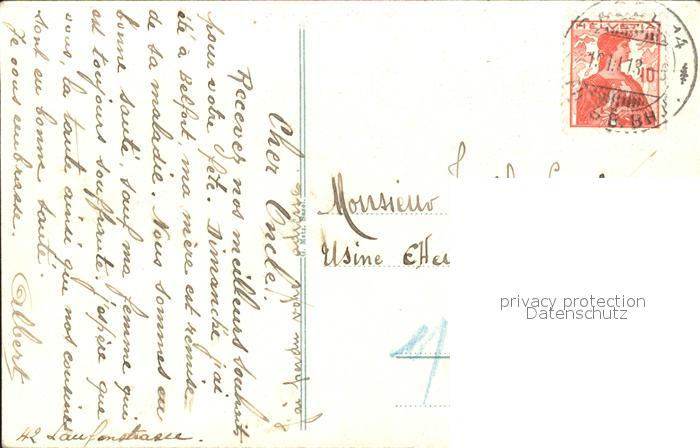 Cher Oncle!
Recevez nos meilleurs souhaits
pour votre fête. Dimanche j'ai
été à Belfort, ma mère est remise
de sa maladie. Nous sommes en
bonne santé, sauf ma femme qui
est toujours souffrante. J'espère que
vous, la tante ainsi que nos cousines
sont en bonne santé.
Je vous embrasse. Albert
42 Laufenstrasse.
Monsieur
Usine
HELVETIA
10
privacy protection
Datenschutz